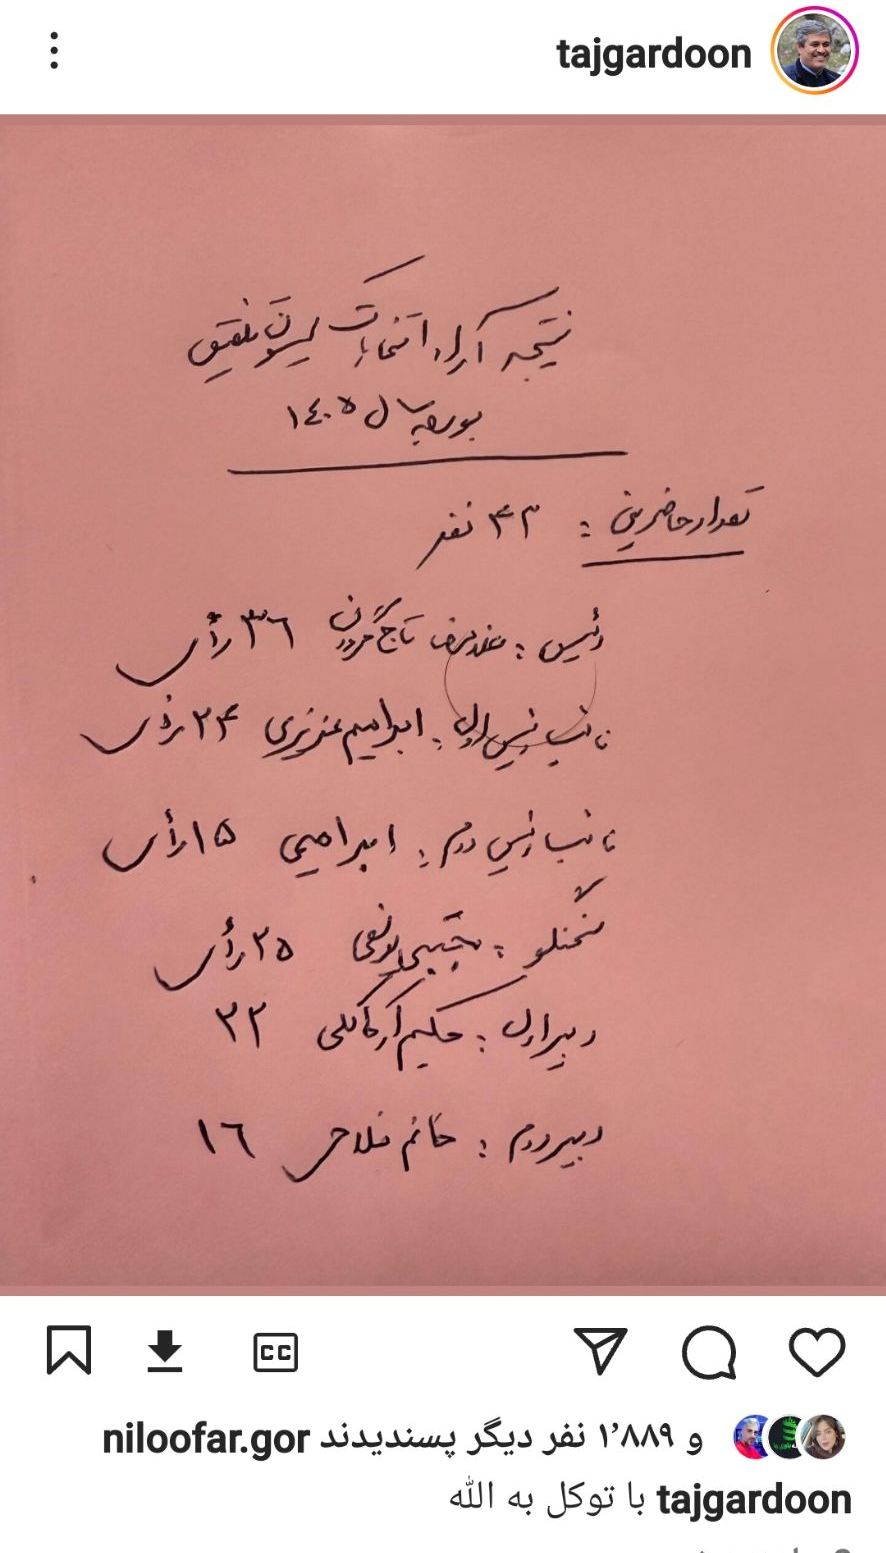 tajgardoon
نتیجه آراء انتخابات کمیسیون تلفیق
بودجه سال ۱۴۰۵
تعداد حاضرین : ۴۳ نفر
رئیس : غلامرضا تاجگردون ۳۶ رأی
نائب رئیس اول : ابراهیم عزیزی ۲۴ رأی
نائب رئیس دوم : ابراهیمی ۱۵ رأی
سخنگو : مجتبی یوسفی ۲۵ رأی
دبیر اول : حکیم آرکائلی ۳۲
دبیر دوم : خانم فلاحی ۱۶
CC
niloofar.gor و ۱٬۸۸۹ نفر دیگر پسندیدند
tajgardoon با توکل به الله